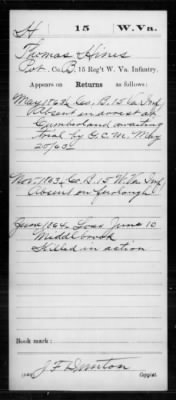 H 15 W.Va.
Thomas Hines
Pvt., Co. B, 15 Reg't W. Va. Infantry.
Appears on Returns as follows:
May 1863, Co. B. 15 Va Inf
Absent in arrest at
Cumberland awaiting
trial by G.C.M. May
20/63.
Nov. 1863, Co. B. 15 W.Va. Inf,
Absent on furlough
June 1864, Loss June 10
Middlebrook
Killed in action
Book mark:
J. F. Denton
Copyist.